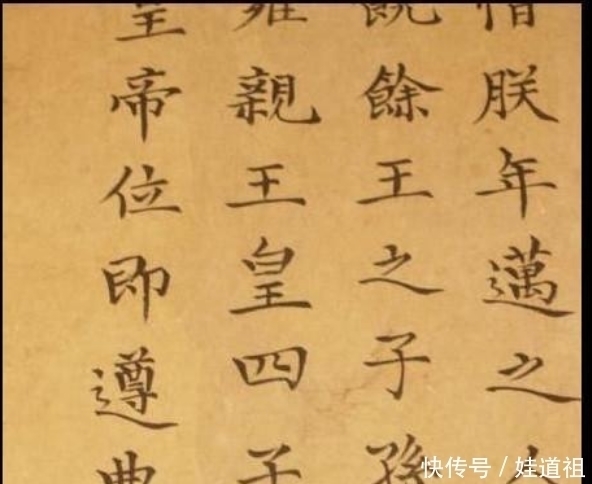 惜朕年邁之人
饒餘王之子孫
雍親王皇四子
皇帝位即遵典
快传号／娃道祖